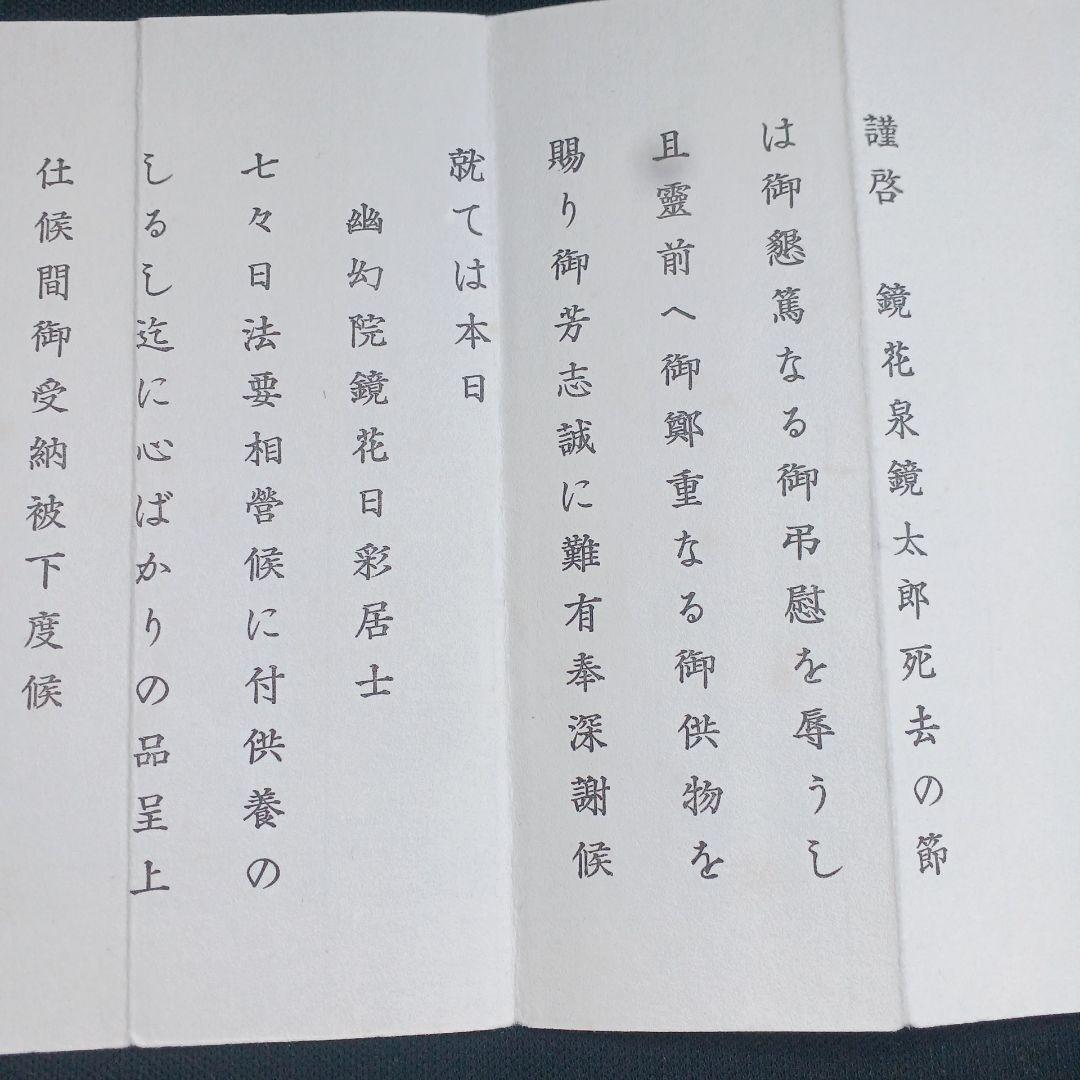 謹啓　鏡花泉鏡太郎死去の節
は御懇篤なる御弔慰を辱うし
且靈前へ御鄭重なる御供物を
賜り御芳志誠に難有奉深謝候
就ては本日
幽幻院鏡花日彩居士
七々日法要相營候に付供養の
しるし迄に心ばかりの品呈上
仕候間御受納被下度候